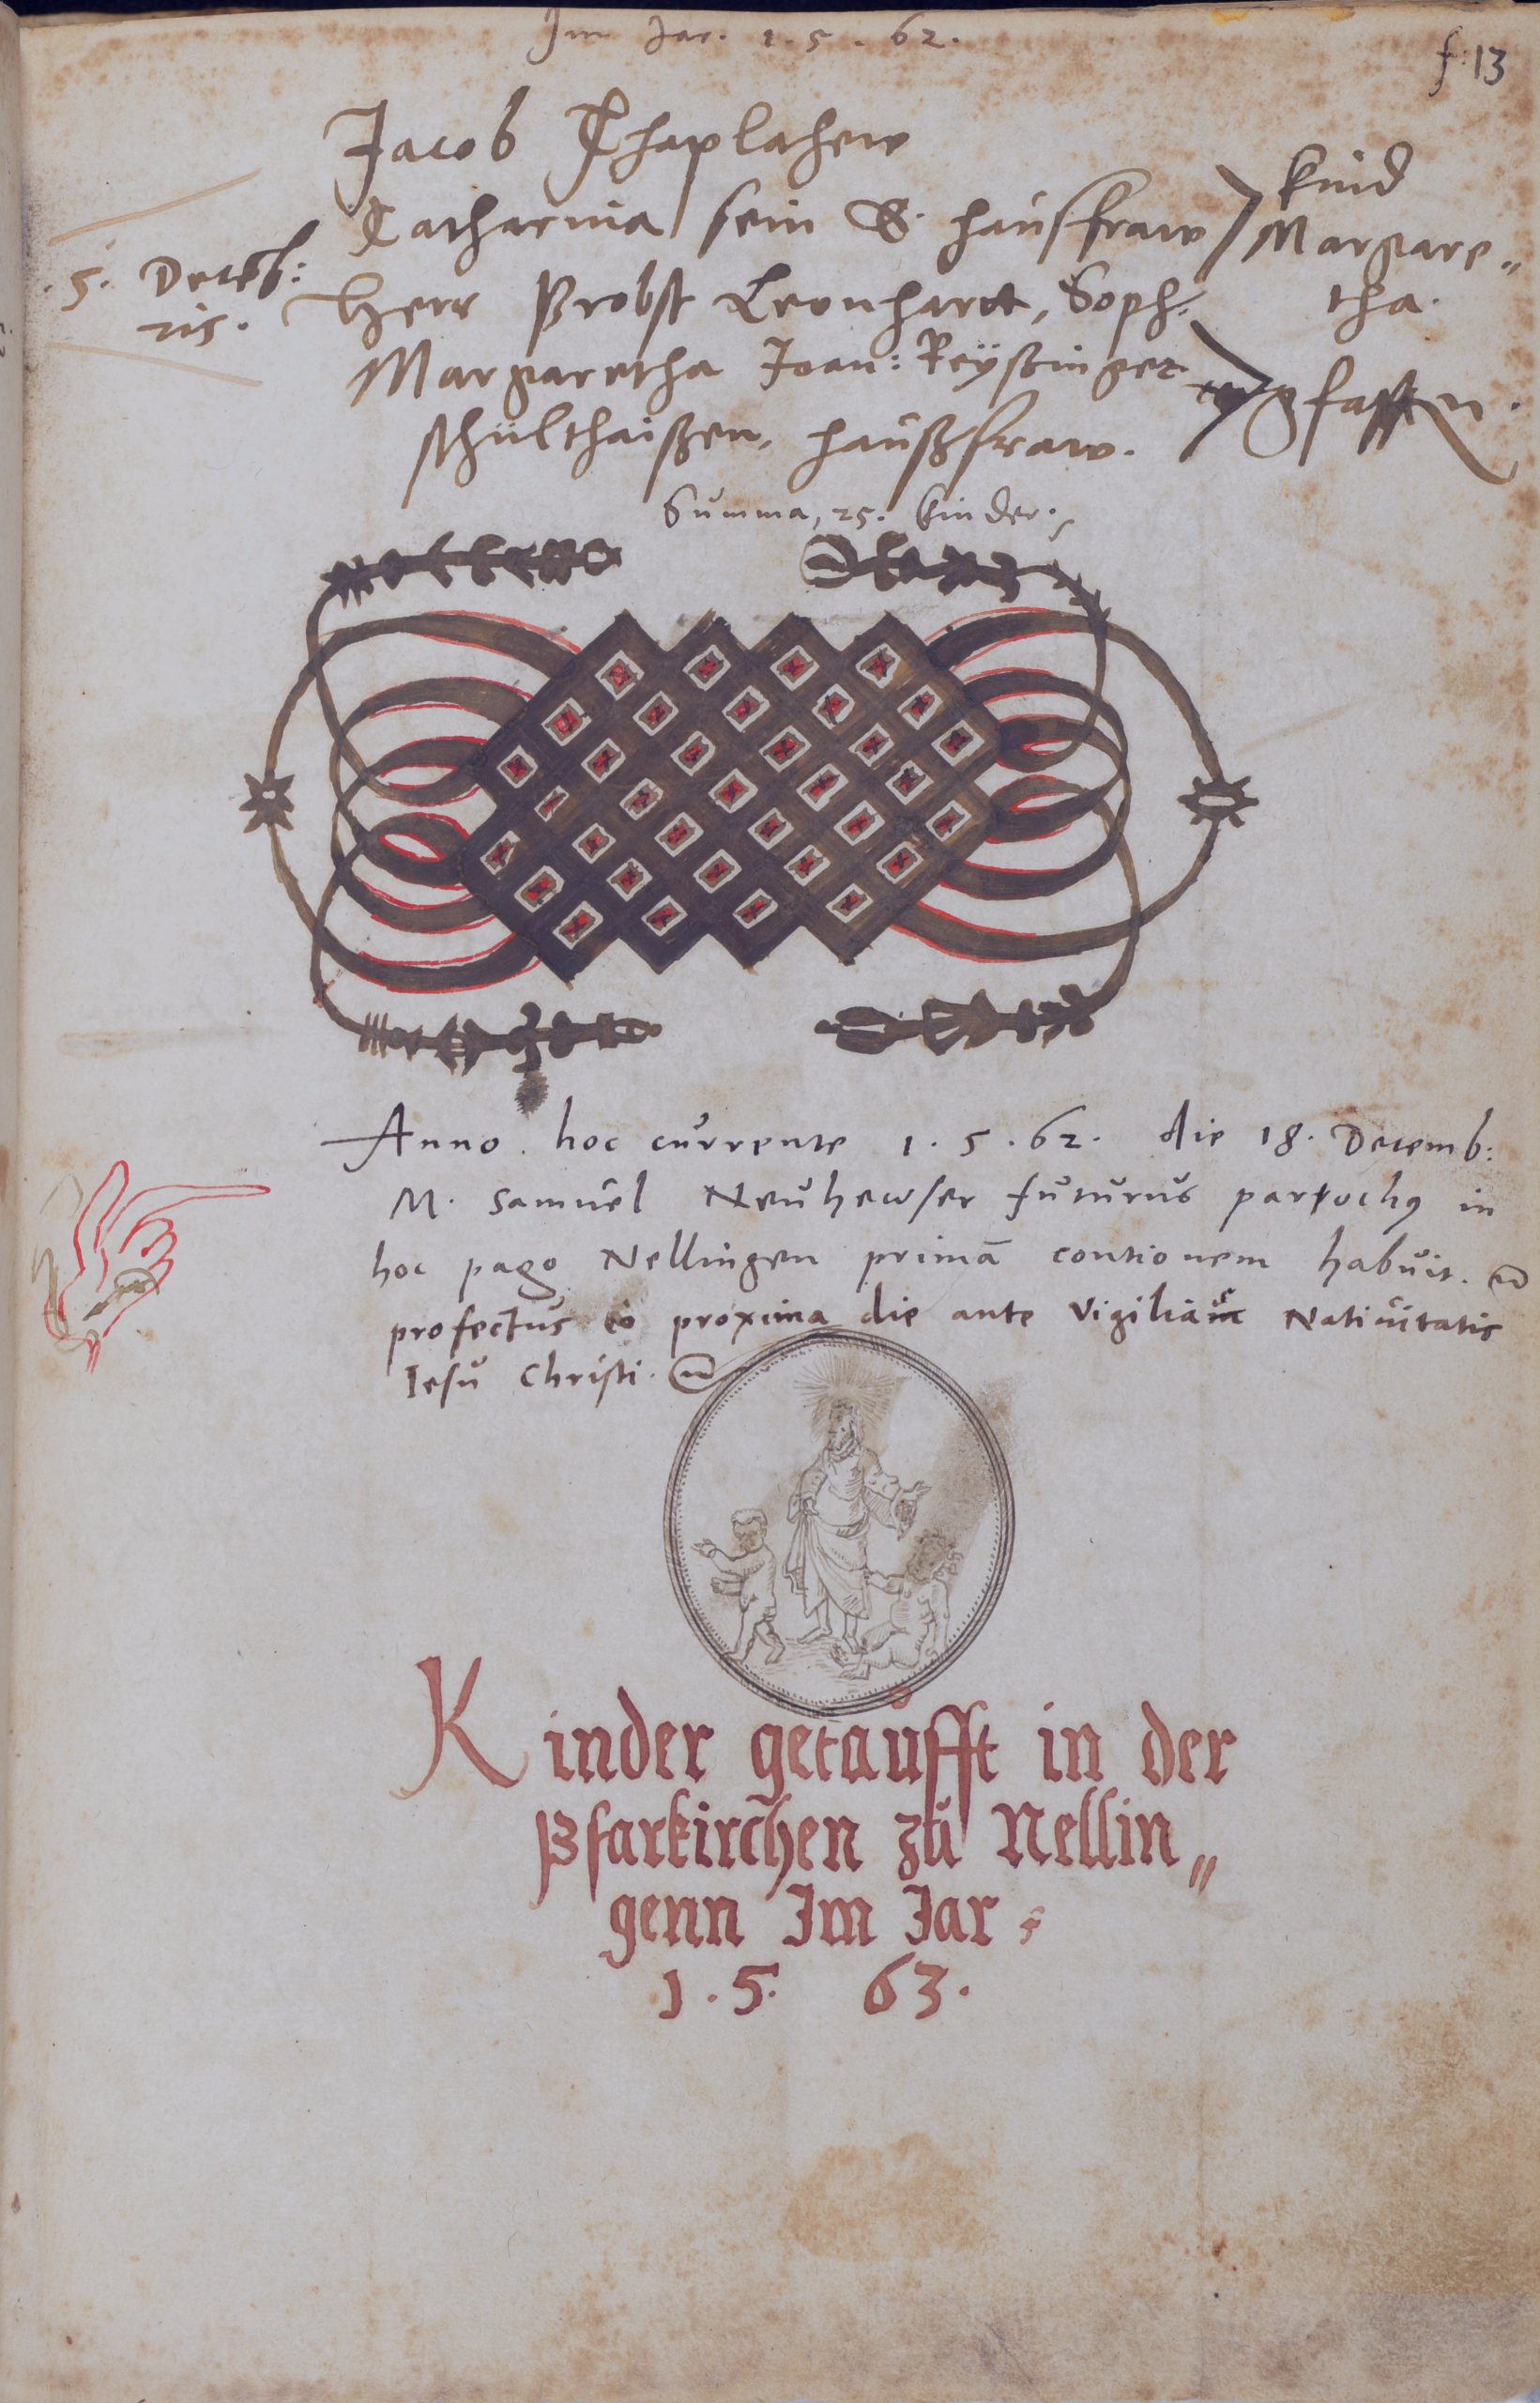 Im Jar. 1.5.62.
f. 13
Jacob Chaplahew
Catharina sein E. haußfraw
kind
Margare„
tha.
.5. Deceb:
ris.
Herr Probst Leonhart, Soph.
Margaretha Joan: Reÿßinger
schulthaißen, haußfraw.
gfattern.
Summa, 25. kinder.
Anno hoc currente 1.5.62. die 18. Decemb:
M. Samuel Neuhewser futurus parrochus in
hoc pago Nellingen primā contionem habuit.
profectus eo proxima die ante Vigiliam Nativitatis
Iesu Christi.
Kinder getaufft in der
Pfarkirchen zu Nellin„
genn Im Jar
1.5. 63.